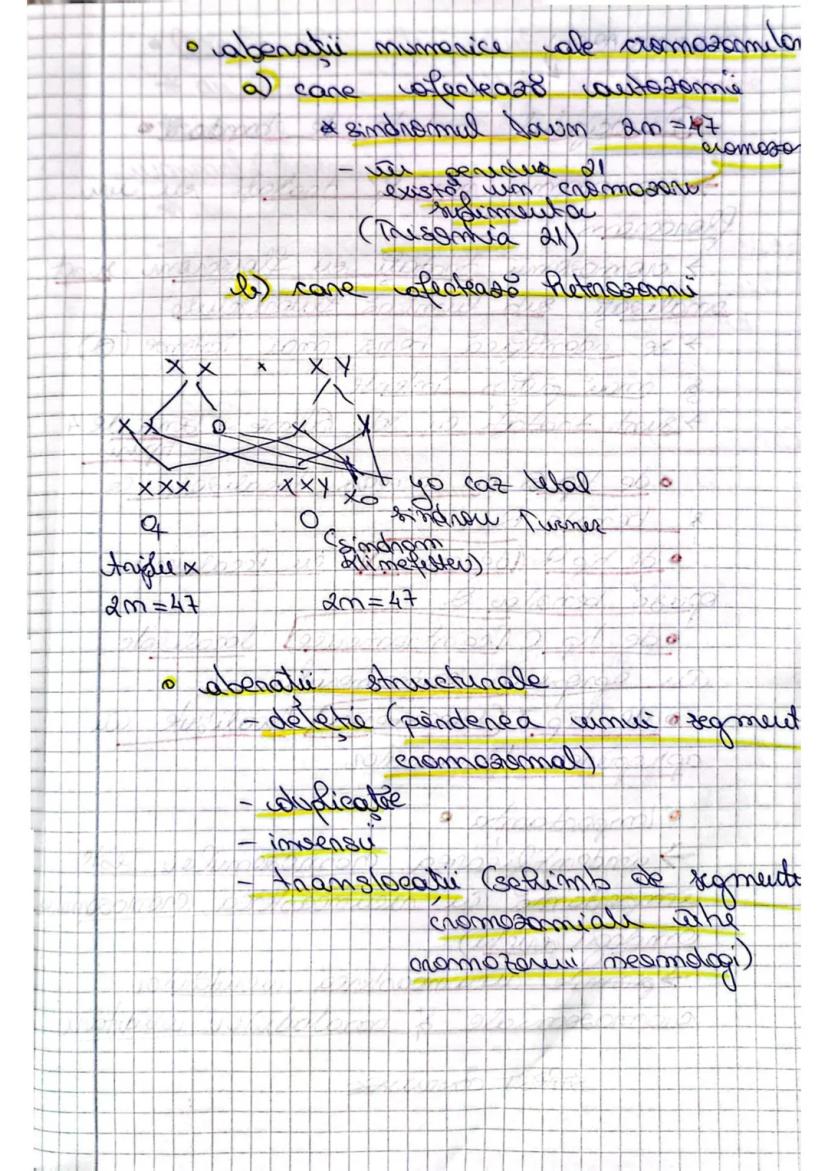 • aberații numerice ale cromozomilor
a) care afectează autozomii
* sindromul Down 2n = 47
cromozo
- în perechea 21
există un cromozom
suplimentar
(Trisomia 21)
b) care afectează heterozomii
X X × X Y
X X O X Y
XXX XXY XO yo caz letal
♀ O sindrom Turner
(sindrom
Klinefelter)
triplu x
2n = 47 2n = 47
• aberații structurale
- deleție (pierderea unui segment
cromozomal)
- duplicație
- inversii
- translocații (schimb de segmente
cromozomiale între
cromozomii neomologi)